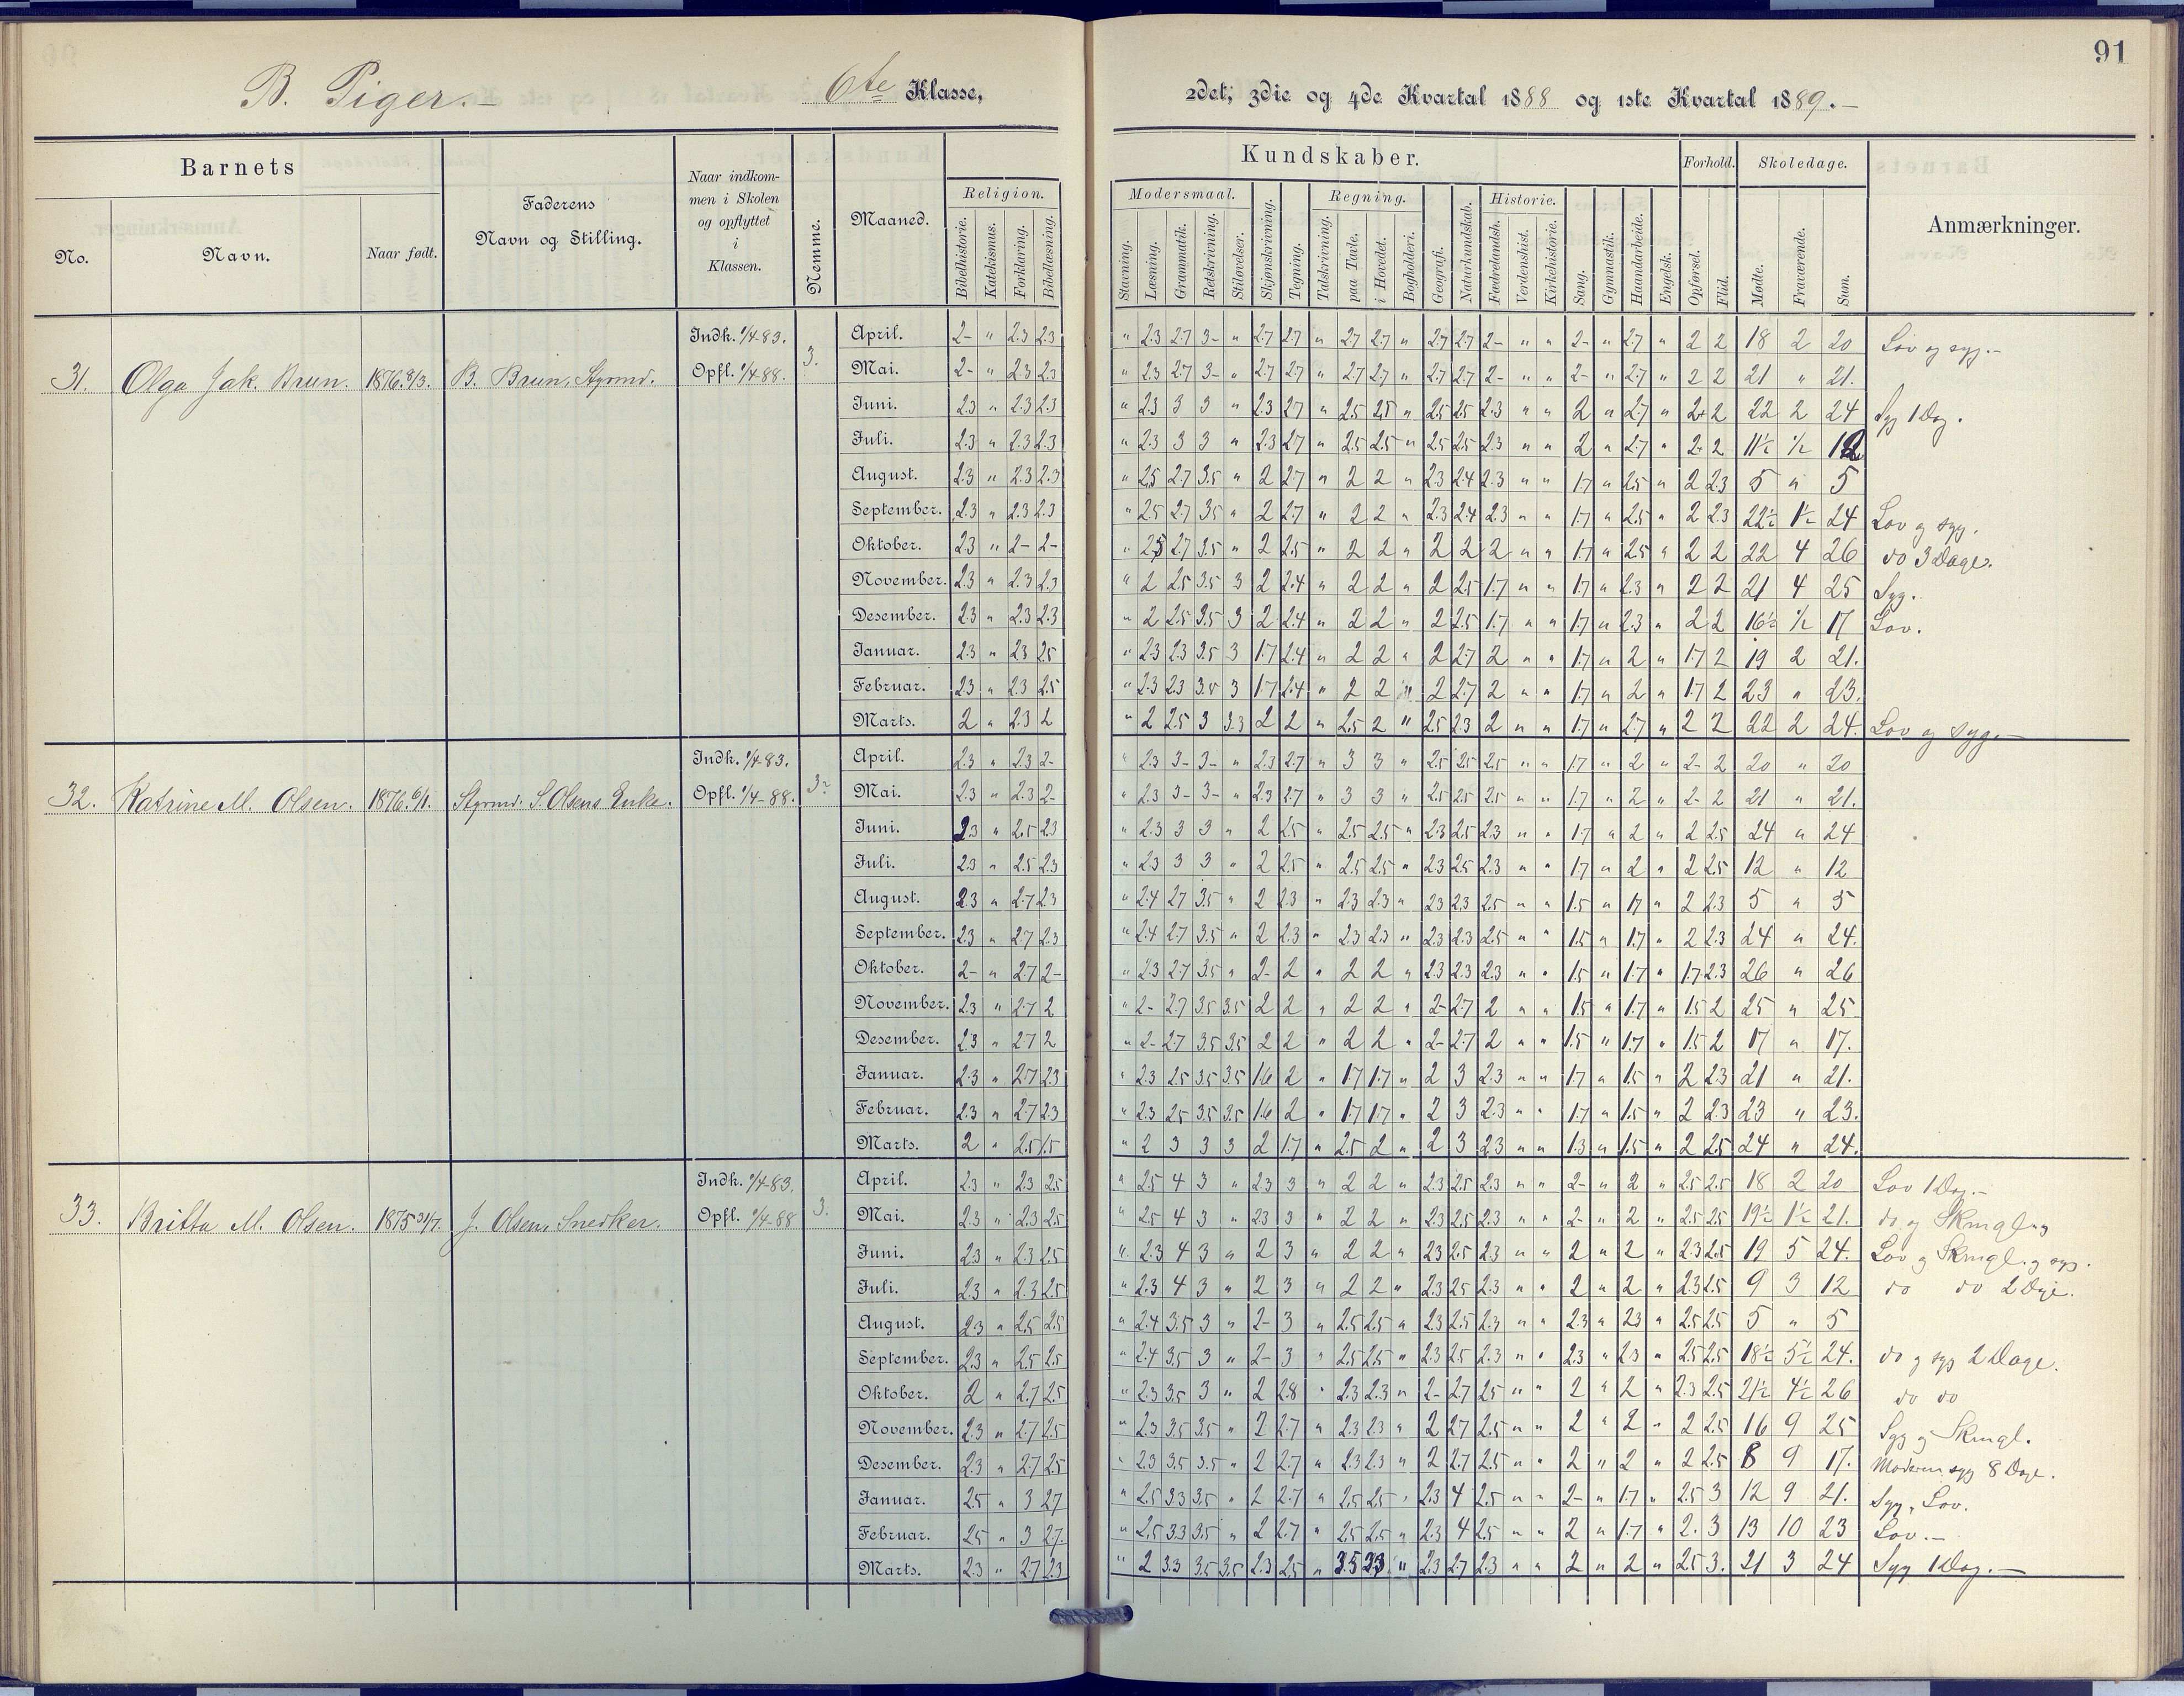 91
B. Piger.—
6te Klasse,
2det, 3die og 4de Kvartal 1888 og 1ste Kvartal 1889.—
Barnets
No.
Navn.
Naar født.
Faderens
Navn og Stilling.
Naar indkom-
men i Skolen
og opflyttet
i
Klassen.
Nemme.
Maaned.
Religion.
Bibelhistorie.
Katekismus.
Forklaring.
Bibellæsning.
Kundskaber.
Modersmaal.
Stavning.
Læsning.
Grammatik.
Retskrivning.
Stiløvelser.
Skjønskrivning.
Tegning.
Regning.
Talskrivning.
paa Tavle.
i Hovedet.
Bogholderi.
Geografi.
Naturkundskab.
Historie.
Fædrelandsh.
Verdenshist.
Kirkehistorie.
Sang.
Gymnastik.
Haandarbeide.
Engelsk.
Forhold.
Opførsel.
Flid.
Skoledage.
Mødte.
Fraværende.
Sum.
Anmærkninger.
31. Olga Jak. Brun. 1876.8/3. B. Brun, Styrmd. Indk. 1/4-83. Opfl. 1/4-88. 3.
April. 2- " 2.3 2.3 " 2.3 2.7 3- " 2.7 2.7 " 2.7 2.7 " 2.7 2.7 2- " " 2- " 2.7 " 2 2 18 2 20 Lov og syg.—
Mai. 2- " 2.3 2.3 " 2.3 2.7 3- " 2.7 2.7 " 2.7 2.7 " 2.7 2.7 2- " " 2- " 2.7 " 2 2 21 " 21.
Juni. 2.3 " 2.3 2.3 " 2.3 3 3 " 2.3 2.7 " 2.5 2.5 " 2.5 2.5 2.3 " " 2 " 2.7 " 2+ 2 22 2 24 Syg 1 Dag.
Juli. 2.3 " 2.3 2.3 " 2.3 3 3 " 2.3 2.7 " 2.5 2.5 " 2.5 2.5 2.3 " " 2 " 2.7 " 2- 2 11½ ½ 12
August. 2.3 " 2.3 2.3 " 2.5 2.7 3.5 " 2 2.7 " 2 2 " 2.3 2.4 2.3 " " 1.7 " 2.5 " 2 2.3 5 " 5
September. 2.3 " 2.3 2.3 " 2.5 2.7 3.5 " 2 2.7 " 2 2 " 2.3 2.4 2.3 " " 1.7 " 2.5 " 2 2.3 22½ 1½ 24 Lov og syg.
Oktober. 2.3 " 2- 2- " 2.5 2.7 3.5 " 2 2.5 " 2 2 " 2 2 2 " " 1.7 " 2.5 " 2 2 22 4 26 do 3 Dage.
November. 2.3 " 2.3 2.3 " 2 2.5 3.5 3 2 2.4 " 2 2 " 2 2.5 1.7 " " 1.7 " 2.3 " 2 2 21 4 25 Syg.
Desember. 2.3 " 2.3 2.3 " 2 2.5 3.5 3 2 2.4 " 2 2 " 2 2.5 1.7 " " 1.7 " 2.3 " 2 2 16½ ½ 17 Lov.
Januar. 2.3 " 2.3 2.5 " 2.3 2.3 3.5 3 1.7 2.4 " 2 2 " 2 2.7 2 " " 1.7 " 2 " 1.7 2 19 2 21.
Februar. 2.3 " 2.3 2.5 " 2.3 2.3 3.5 3 1.7 2.4 " 2 2 " 2 2.7 2 " " 1.7 " 2 " 1.7 2 23 " 23.
Marts. 2 " 2.3 2 " 2 2.5 3 3.3 2 2 " 2.5 2 " 2.5 2.3 2 " " 1.7 " 2.7 " 2 2 22 2 24. Lov og syg.—
32. Katrine M. Olsen. 1876.6/1. Styrmd. S. Olsens Enke. Indk. 1/4-83. Opfl. 1/4-88. 3-
April. 2.3 " 2.3 2- " 2.3 3- 3- " 2.3 2.7 " 3 3 " 2.5 2.5 2.5 " " 1.7 " 2 " 2- 2 20 " 20
Mai. 2.3 " 2.3 2- " 2.3 3- 3- " 2.3 2.7 " 3 3 " 2.5 2.5 2.5 " " 1.7 " 2 " 2- 2 21 " 21.
Juni. 2.3 " 2.5 2.3 " 2.3 3 3 " 2 2.5 " 2.5 2.5 " 2.3 2.5 2.3 " " 1.7 " 2 " 2 2.5 24 " 24
Juli. 2.3 " 2.5 2.3 " 2.3 3 3 " 2 2.5 " 2.5 2.5 " 2.3 2.5 2.3 " " 1.7 " 2 " 2 2.5 12 " 12
August. 2.3 " 2.7 2.3 " 2.4 2.7 3.5 " 2 2.3 " 2.3 2.3 " 2.3 2.3 2.5 " " 1.5 " 1.7 " 2 2.3 5 " 5
September. 2.3 " 2.7 2.3 " 2.4 2.7 3.5 " 2 2.3 " 2.3 2.3 " 2.3 2.3 2.5 " " 1.5 " 1.7 " 2 2.3 24 " 24.
Oktober. 2- " 2.7 2- " 2.3 2.7 3.5 " 2- 2 " 2 2 " 2.3 2.3 2.3 " " 1.5 " 1.7 " 1.7 2.3 26 " 26
November. 2.3 " 2.7 2 " 2- 2.7 3.5 3.5 2 2 " 2 2 " 2- 2.7 2 " " 1.5 " 1.7 " 1.5 2 25 " 25
Desember. 2.3 " 2.7 2 " 2- 2.7 3.5 3.5 2 2 " 2 2 " 2- 2.7 2 " " 1.5 " 1.7 " 1.5 2 17 " 17.
Januar. 2.3 " 2.7 2.3 " 2.3 2.5 3.5 3.5 1.6 2 " 1.7 1.7 " 2 3 2.3 " " 1.7 " 1.5 " 2 2.3 21 " 21.
Februar. 2.3 " 2.7 2.3 " 2.3 2.5 3.5 3.5 1.6 2 " 1.7 1.7 " 2 3 2.3 " " 1.7 " 1.5 " 2 2.3 23 " 23.
Marts. 2 " 2.5 1.5 " 2 3 3 3 2 1.7 " 2.5 2 " 2 3 2.3 " " 1.3 " 1.5 " 2 2.5 24 " 24.
33. Britta M. Olsen. 1875 J. Olsen, Snedker. Indk. 1/4-83. Opfl. 1/4-88 3.
April. 2.3 " 2.3 2.5 " 2.5 4 3 " 2.3 3 " 2 2 " 2.3 2.5 2.3 " " 2- " 2 " 2.5 2.5 18 2 20 Lov 1 Dag.—
Mai. 2.3 " 2.3 2.5 " 2.5 4 3 " 2.3 3 " 2 2 " 2.3 2.5 2.3 " " 2- " 2 " 2.5 2.5 19½ 1½ 21. do og Skmgl.
Juni. 2.3 " 2.3 2.5 " 2.3 4 3 " 2 3 " 2 2 " 2.3 2.5 2.3 " " 2 " 2 " 2.3 2.5 19 5 24. Lov og Skmgl. og syg.
Juli. 2.3 " 2.3 2.5 " 2.3 4 3 " 2 3 " 2 2 " 2.3 2.5 2.3 " " 2 " 2 " 2.3 2.5 9 3 12 do do 2 Dge.
August. 2.3 " 2.5 2.5 " 2.4 3.5 3 " 2- 3 " 2.5 2.5 " 2.3 2.5 2.3 " " 2.3 " 2.3 " 2.5 2.5 5 " 5
September. 2.3 " 2.5 2.5 " 2.4 3.5 3 " 2- 3 " 2.5 2.5 " 2.3 2.5 2.3 " " 2.3 " 2.3 " 2.5 2.5 18½ 5½ 24. do og syg 2 Dage.
Oktober. 2 " 2.7 2.5 " 2.3 3.5 3 " 2 2.8 " 2.3 2.3 " 2- 2.7 2.5 " " 2 " 2 " 2.3 2.5 21½ 4½ 26 do do
November. 2.3 " 2.7 2.5 " 2.3 3.5 3.5 " 2 2.7 " 2.3 2.3 " 2 2.7 2.5 " " 2 " 2 " 2 2.5 16 9 25 Syg og Skmgl.
Desember. 2.3 " 2.7 2.5 " 2.3 3.5 3.5 " 2 2.7 " 2.3 2.3 " 2 2.7 2.5 " " 2 " 2 " 2 2.5 8 9 17. Moderen syg 8 Dage.
Januar. 2.5 " 3 2.7 " 2.5 3.3 3.5 " 2 2.7 " 2.5 2.5 " 2.3 4 2.5 " " 2- " 1.7 " 2.5 3 12 9 21. Syg, Lov.
Februar. 2.5 " 3 2.7. " 2.5 3.3 3.5 " 2 2.7 " 2.5 2.5 " 2.3 4 2.5 " " 2 " 1.7 " 2. 3 13 10 23 Lov.—
Marts. 2.3 " 2.7 2.3 " 2 3.3 3.5 3.5 2.3 2.5 " 3.5 2.3 " 2.3 2.7 2.3 " " 2 " 2 " 2.5 3. 21 3 24 Syg 1 Dag.—